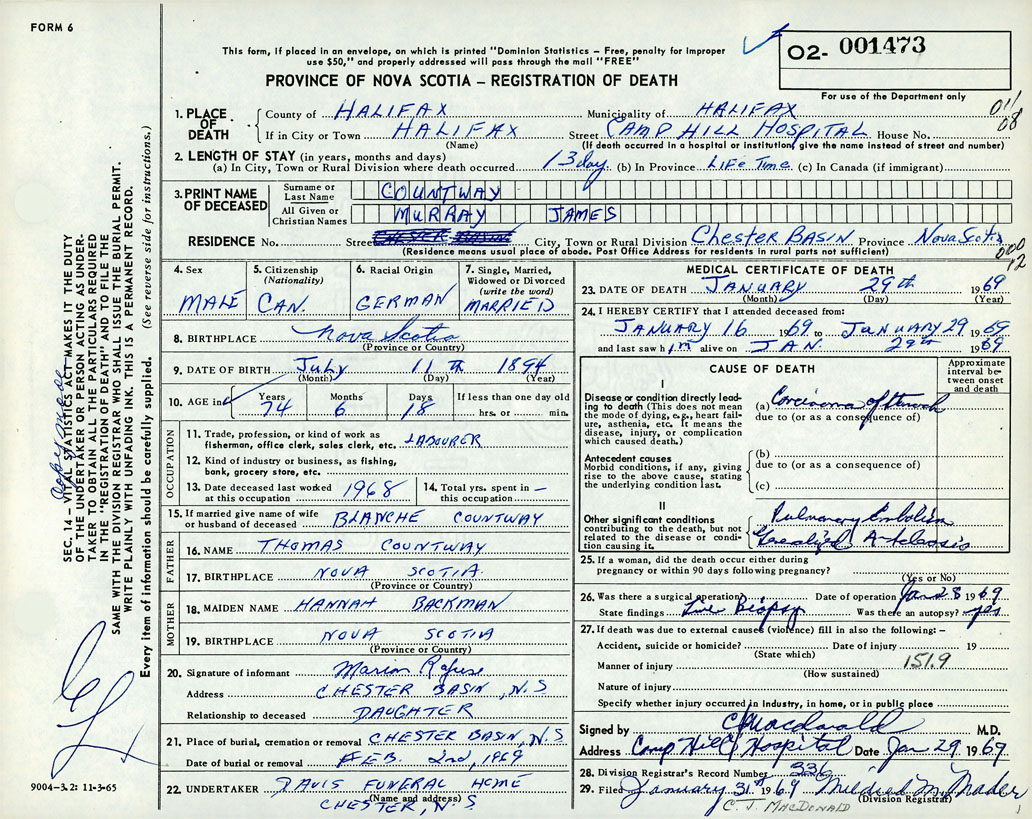 FORM 6
This form, if placed in an envelope, on which is printed "Dominion Statistics – Free, penalty for improper
use $50," and properly addressed will pass through the mail "FREE"
PROVINCE OF NOVA SCOTIA – REGISTRATION OF DEATH
02- 001473
For use of the Department only
011
08
1. PLACE OF DEATH
County of HALIFAX Municipality of HALIFAX
If in City or Town HALIFAX Street CAMP HILL HOSPITAL House No.
(Name) (If death occurred in a hospital or institution, give the name instead of street and number)
2. LENGTH OF STAY (in years, months and days)
(a) In City, Town or Rural Division where death occurred 13 day. (b) In Province LIFE Time (c) In Canada (if immigrant)
3. PRINT NAME OF DECEASED
Surname or Last Name COUNTWAY
All Given or Christian Names MURRAY JAMES
RESIDENCE No. Street CHESTER BASIN City, Town or Rural Division Chester BASIN Province Nova Scotia
(Residence means usual place of abode. Post Office Address for residents in rural parts not sufficient)
4. Sex MALE
5. Citizenship (Nationality) CAN.
6. Racial Origin GERMAN
7. Single, Married, Widowed or Divorced (write the word) MARRIED
8. BIRTHPLACE Nova Scotia
(Province or Country)
9. DATE OF BIRTH July 11th 1894
(Month) (Day) (Year)
10. AGE in Years 74 Months 6 Days 18 If less than one day old
hrs. or min.
OCCUPATION
11. Trade, profession, or kind of work as
fisherman, office clerk, sales clerk, etc. LABOURER
12. Kind of industry or business, as fishing,
bank, grocery store, etc.
13. Date deceased last worked
at this occupation 1968
14. Total yrs. spent in
this occupation –
15. If married give name of wife
or husband of deceased BLANCHE COUNTWAY
FATHER
16. NAME THOMAS COUNTWAY
17. BIRTHPLACE NOVA SCOTIA.
(Province or Country)
MOTHER
18. MAIDEN NAME HANNAH BACKMAN
19. BIRTHPLACE NOVA SCOTIA
(Province or Country)
20. Signature of informant Marion Rafuse
Address CHESTER BASIN, N.S
Relationship to deceased DAUGHTER
21. Place of burial, cremation or removal CHESTER BASIN, N.S
Date of burial or removal FEB. 2nd, 1969
22. UNDERTAKER DAVIS FUNERAL HOME
(Name and address)
CHESTER, N.S
MEDICAL CERTIFICATE OF DEATH
23. DATE OF DEATH JANUARY 29th 1969
(Month) (Day) (Year)
24. I HEREBY CERTIFY that I attended deceased from:
JANUARY 16 1969 to JANUARY 29 1969
and last saw him alive on JAN. 29th 1969
CAUSE OF DEATH
Approximate interval between onset and death
I
Disease or condition directly leading to death (This does not mean the mode of dying, e.g., heart failure, asthenia, etc. It means the disease, injury, or complication which caused death.)
(a) Carcinoma of stomach
due to (or as a consequence of)
Antecedent causes
Morbid conditions, if any, giving rise to the above cause, stating the underlying condition last.
(b)
due to (or as a consequence of)
(c)
II
Other significant conditions
contributing to the death, but not related to the disease or condition causing it.
Pulmonary Embolism
Generalized
25. If a woman, did the death occur either during
pregnancy or within 90 days following pregnancy?
(Yes or No)
26. Was there a surgical operation? Date of operation Jan 28 1969
State findings Biopsy Was there an autopsy? yes
27. If death was due to external causes (violence) fill in also the following: –
Accident, suicide or homicide? Date of injury 19
(State which)
151.9
Manner of injury
(How sustained)
Nature of injury
Specify whether injury occurred in industry, in home, or in public place
Signed by CJ Macdonald M.D.
Address Camp Hill Hospital Date Jan 29 1969
28. Division Registrar's Record Number 336
29. Filed January 31st 1969 Mildred M Mader
(Division Registrar)
C. J. MACDONALD
SEC. 14 – VITAL STATISTICS ACT MAKES IT THE DUTY
OF THE UNDERTAKER OR PERSON ACTING AS UNDER-
TAKER TO OBTAIN ALL THE PARTICULARS REQUIRED
IN THE "REGISTRATION OF DEATH" AND TO FILE THE
SAME WITH THE DIVISION REGISTRAR WHO SHALL ISSUE THE BURIAL PERMIT.
WRITE PLAINLY WITH UNFADING INK. THIS IS A PERMANENT RECORD.
Every item of information should be carefully supplied. (See reverse side for instructions.)
9004-3.2: 11-3-65